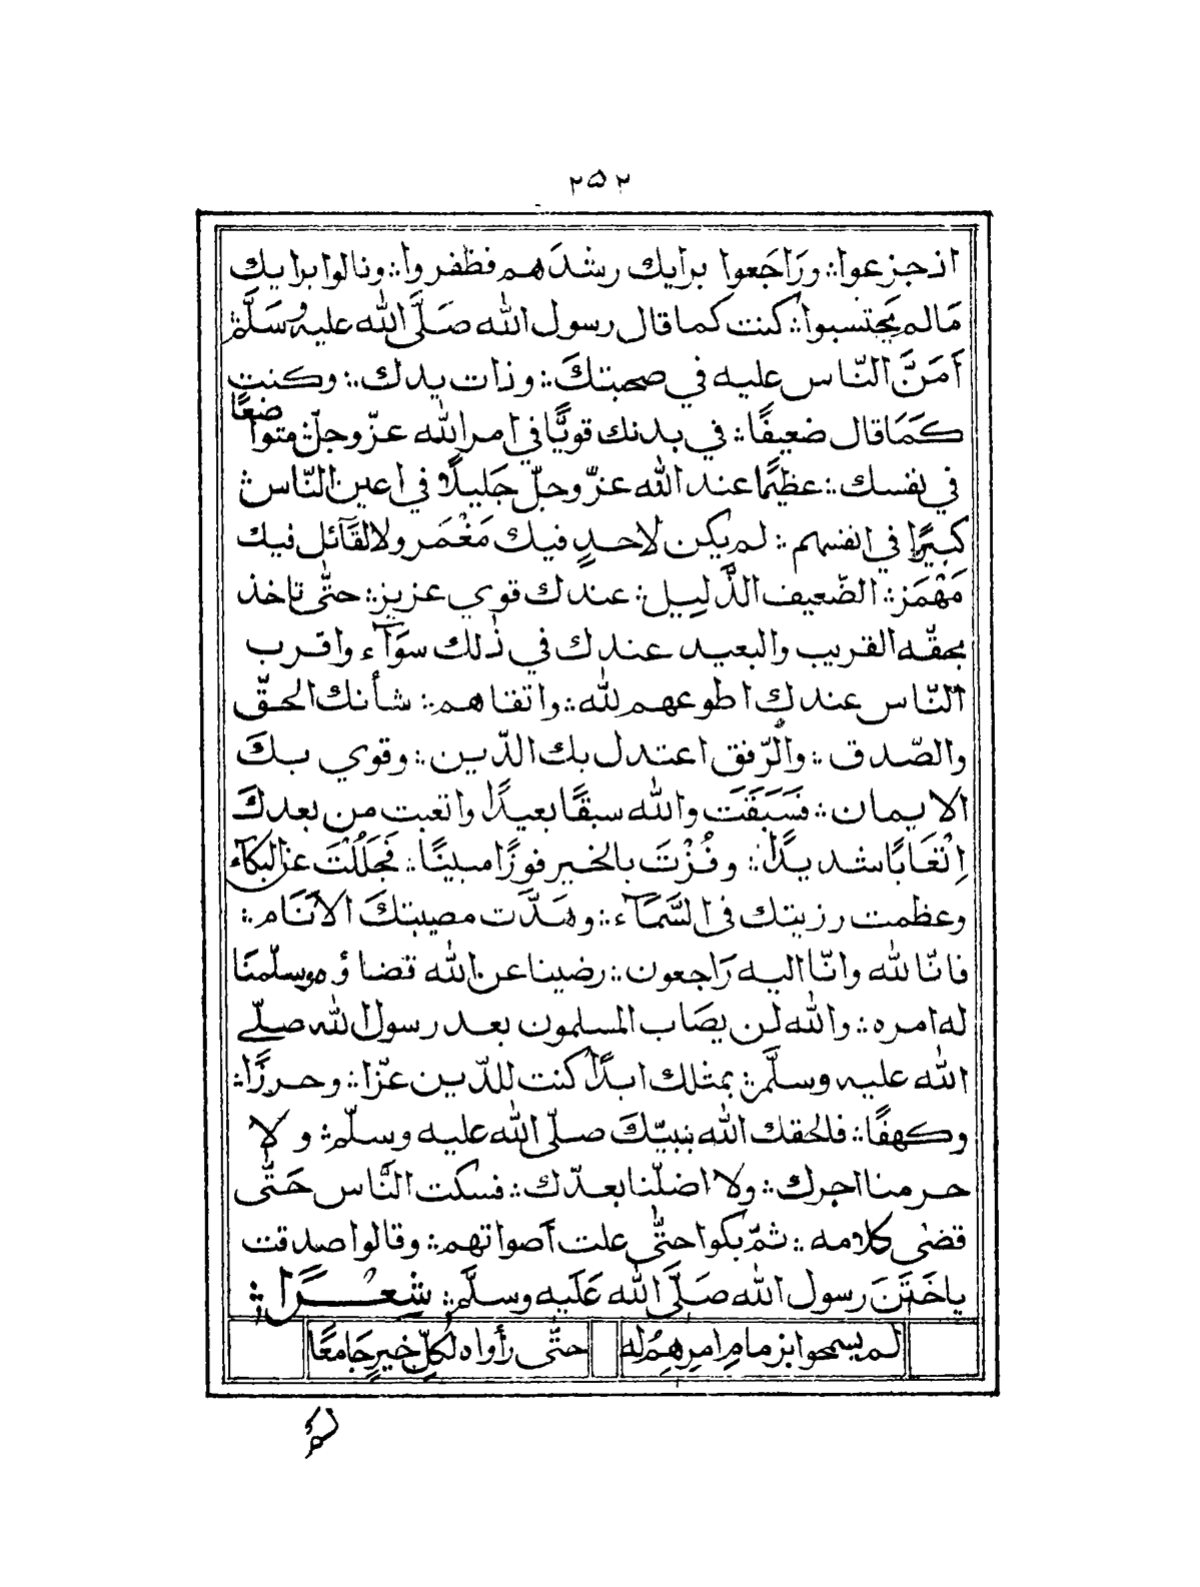 ٢٥٢
اذ جزعوا ؞ ورَاجَعوا برايك رشدَهم فظفروا ؞ ونالوا برايك
مَالم يحتسبوا ؞ كنت كما قال رسول الله صَلَّى الله عليه وسَلَّم ؞
أمَنَّ النّاس عليه في صحبتكَ ؞ وذات يدك ؞ وكنت
كَمَا قال ضعيفًا ؞ في بدنك قويًّا في امر الله عزّ وجلّ ؞ متواضعًا
في نفسك ؞ عظيمًا عند الله عزّ وجلّ جَليلًا في اعين النّاس ؞
كبيرًا في انفسهم ؞ لم يكن لاحدٍ فيك مَغْمَز ولا لقَآئل فيك
مَهْمَز ؞ الضّعيف الذَّليل ؞ عندك قوي عزيز ؞ حتّٰى تاخذ
بحقّه القريب والبعيد عندك في ذٰلك سوَآء واقرب
النّاس عندك اطوعهم لله ؞ واتقاهم ؞ شأنك الحقّ
والصّدق ؞ والرّفق اعتدل بك الدّين ؞ وقوي بكَ
الايمان ؞ فسَبَقَت والله سبقًا بعيدًا واتعبت من بعدكَ
اِتْعَابًا شديدًا ؞ وفُزْتَ بالخير فوزًا مبينًا ؞ فَجَلَلْتَ عن البكآء
وعظمت رزيتك في السَّمَآء ؞ وهَدَّت مصيبتكَ الأنَام ؞
فانّا لله وانّا اليه رَاجعون ؞ رضينا عن الله قضاؤه وسلّمنَا
له امره ؞ والله لن يصَاب المسلمون بعد رسول الله صلّے
الله عليه وسلَّم ؞ بمثلك ابدًا كنت للدّين عزّا ؞ وحرزًا ؞
وكهفًا ؞ فلحقك الله بنبيّكَ صلّى الله عليه وسلّم ؞ ولا
حرمنا اجرك ؞ ولا اضلّنا بعدّك ؞ فسكت النَّاس حَتّٰى
قضٰى كلامه ؞ ثمّ بكوا حتّٰى علت أصواتهم ؞ وقالوا صدقت
ياخَتَنَ رسول الله صَلَّى الله عَلَيه وسلَّم ؞ شِعْرًا ؞
لم يسمحوا بزمامِ امرِهِم له حتّٰى رأواه لكلّ خيرٍ جَامعًا